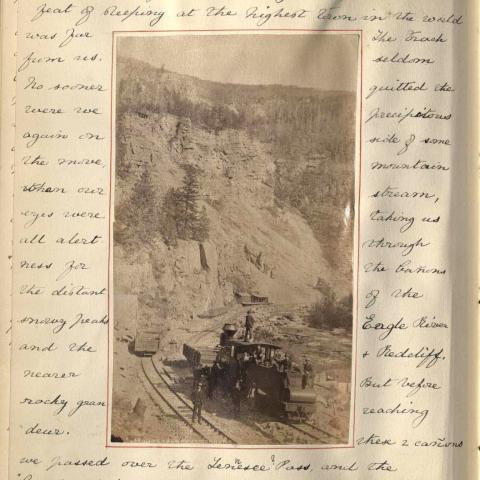 feat of sleeping at the highest town in the world
was far
from us.
No sooner
were we
again on
the move,
when our
eyes were
all alert-
ness for
the distant
snowy peaks
and the
nearer
rocky gran
deur.
The track
seldom
quitted the
precipitous
side of some
mountain
stream,
taking us
through
the Cañons
of the
Eagle River
& Redcliff.
But before
reaching
these 2 cañons
we passed over the Tennessee Pass, and the